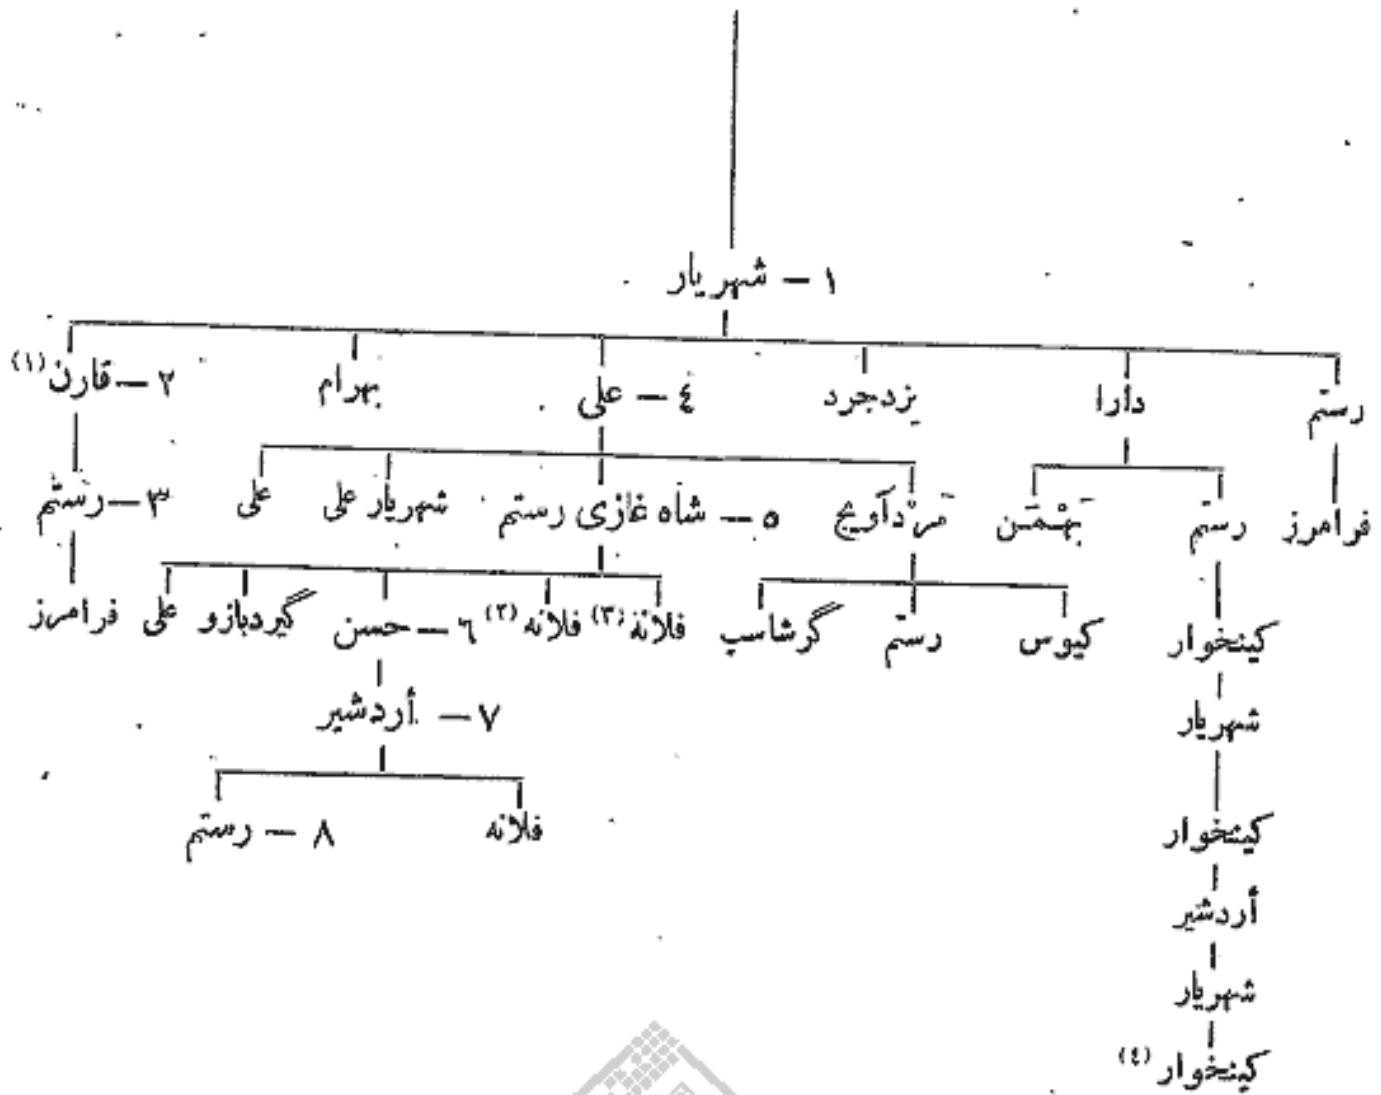 ١ – شهریار
رستم دارا یزدجرد ٤ – علی بهرام ٢ – قارن (١)
فرامرز رستم بَهْمَن مَرْدآویج ٥ – شاه غازی رستم شهریار علی علی ٣ – رستم
کینخوار کیوس رستم گرشاسب فلانة (٣) فلانه (٢) ٦ – حسن گیردبازو علی فرامرز
شهریار
٧ – أردشیر
کینخوار
فلانه ٨ – رستم
أردشیر
شهریار
کینخوار (٤)